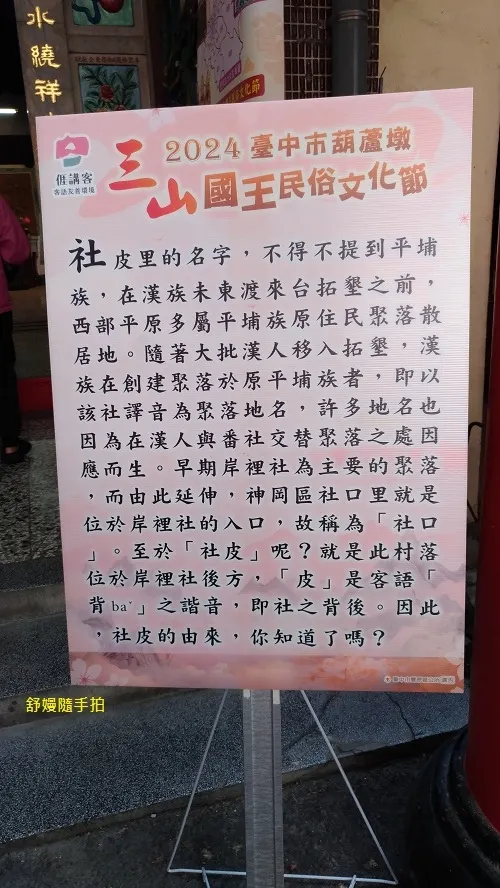 水繞祥
文化節
𠊎講客
客語友善環境
2024臺中市葫蘆墩
三山國王民俗文化節
社皮里的名字，不得不提到平埔
族，在漢族未東渡來台拓墾之前，
西部平原多屬平埔族原住民聚落散
居地。隨著大批漢人移入拓墾，漢
族在創建聚落於原平埔族者，即以
該社譯音為聚落地名，許多地名也
因為在漢人與番社交替聚落之處因
應而生。早期岸裡社為主要的聚落
，而由此延伸，神岡區社口里就是
位於岸裡社的入口，故稱為「社口
」。至於「社皮」呢？就是此村落
位於岸裡社後方，「皮」是客語「
背baˇ」之諧音，即社之背後。因此
，社皮的由來，你知道了嗎？
舒嫚隨手拍